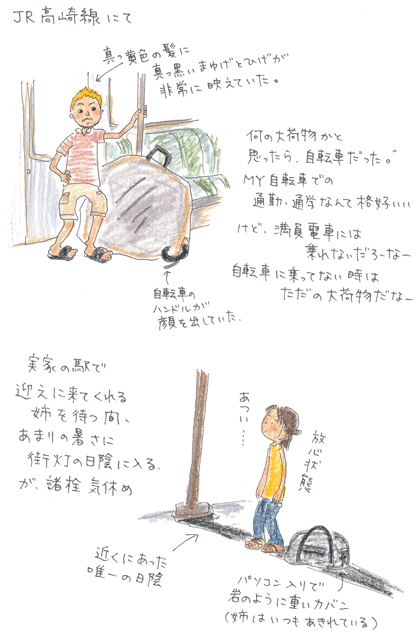 JR高崎線にて
真っ黄色の髪に
真っ黒いまゆげとひげが
非常に映えていた。
何の大荷物かと
思ったら、自転車だった。
MY自転車での
通勤、通学なんて格好いい
けど、満員電車には
乗れないだろーなー
自転車に乗ってない時は
ただの大荷物だなー
自転車の
ハンドルが
顔を出していた.
実家の駅で
迎えに来てくれる
姉を待つ間、
あまりの暑さに
街灯の日陰に入る.
が、諸栓 気休め
あつい…
放心状態
近くにあった
唯一の日陰
パソコン入りで
岩のように重いカバン
(姉はいつもあきれている)